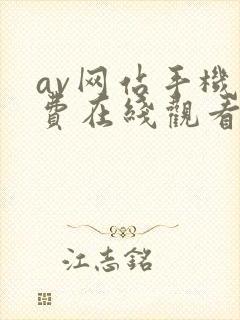 av网佔手機
費在綫觀看
江志銘